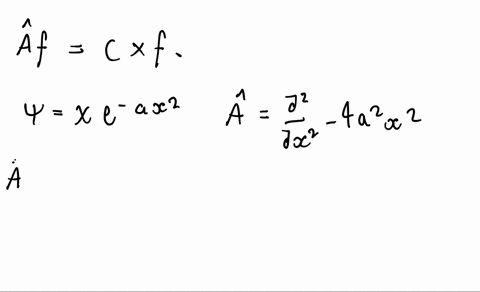 Âf = C × f.
Ψ = x e^{-ax^2}    Â = ∂²/∂x² - 4a²x²
Â